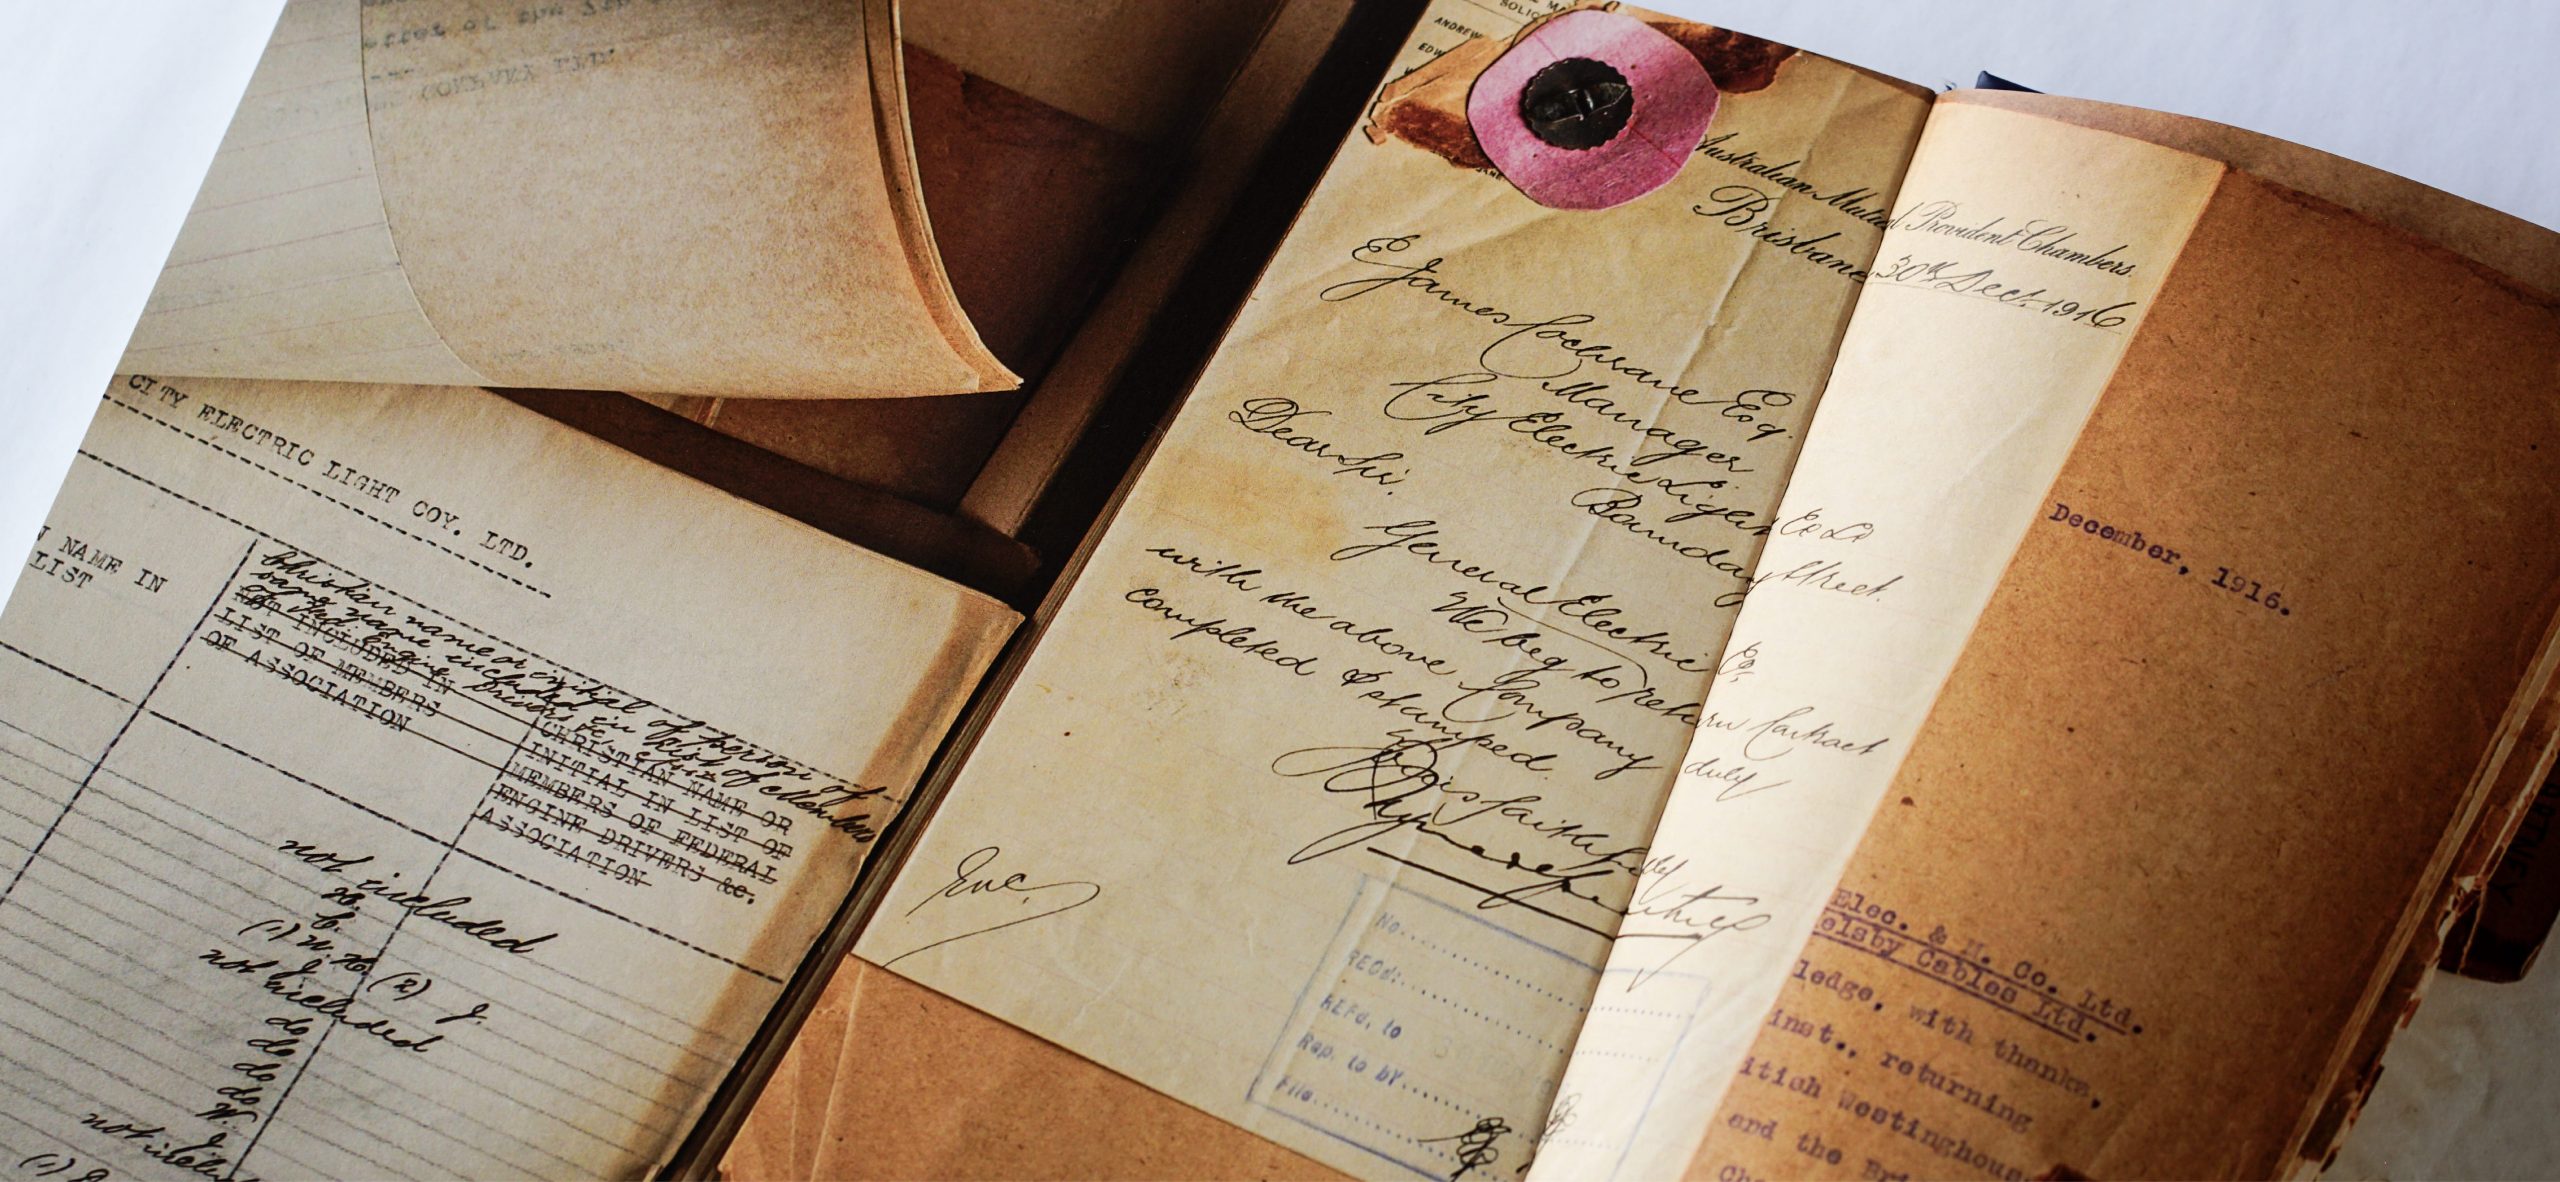 CITY ELECTRIC LIGHT COY. LTD.
NAME IN
LIST
Christian name or initial of person of
same name included in list of Members
of Fed. Engine Drivers &c
NOT INCLUDED IN
LIST OF MEMBERS
OF ASSOCIATION
CHRISTIAN NAME OR
INITIAL IN LIST OF
MEMBERS OF FEDERAL
ENGINE DRIVERS &c.
ASSOCIATION
not included
(1) W. H. (2) J.
not included
do
do
do
do
W.
J.
SOLIC
ANDREW
EDW
Australian Mutual Provident Chambers.
Brisbane, 30th Dect. 1916
E James Cochrane Esq.
Manager
City Electric Light Co Ld
Boundary Street.
Dear Sir.
General Electric Co.
We beg to return Contract
with the above Company duly
completed & stamped.
Yours faithfully
Enc.
No.
RECd.
REFd. to
Rep. to by
File
December, 1916.
Elec. & M. Co. Ltd.
elsby Cables Ltd.
ledge, with thanks,
inst., returning
itish Westinghouse
and the Bri